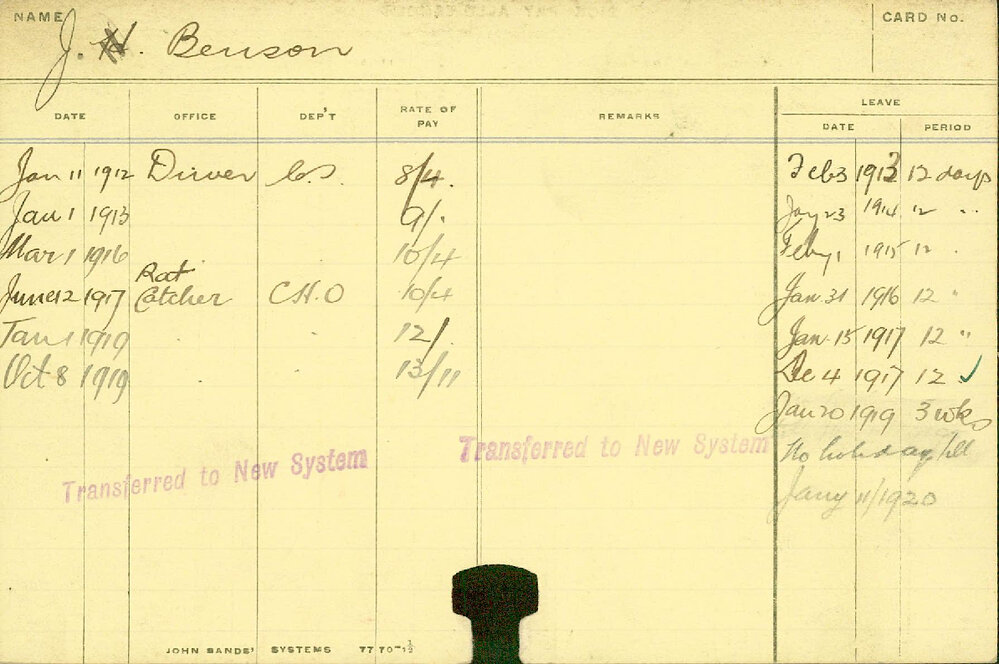 NAME J. H. Benson CARD No.
LEAVE
DATE OFFICE DEP'T RATE OF PAY REMARKS DATE PERIOD
Jan 11 1912 Driver C.S. 8/4. Feb 3 1913 12 days
Jan 1 1913 9/. Jany 23 1914 12 "
Mar 1 1916 10/4 Feby 1 1915 12 "
June 12 1917 Rat Catcher C.H.O 10/4 Jan 31 1916 12 "
Jan 1 1919 12/. Jan 15 1917 12 "
Oct 8 1919 13/11 De 4 1917 12 ✓
Jan 20 1919 3 wks
Transferred to New System Transferred to New System No holiday till
Jany 11/1920
JOHN SANDS' SYSTEMS 7770-½